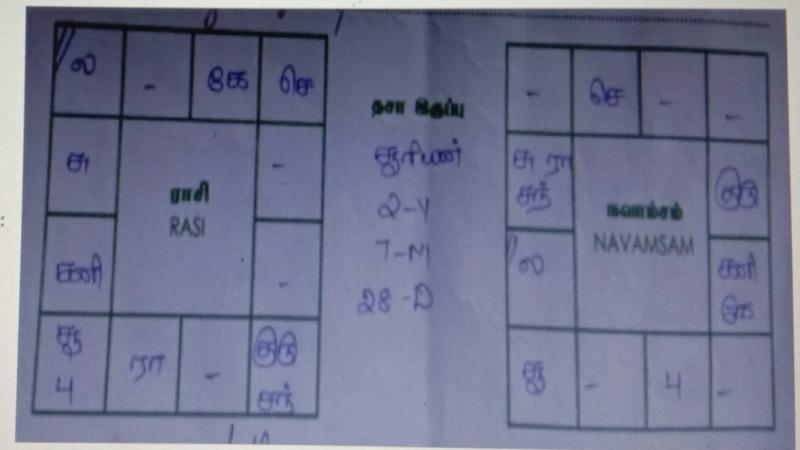 ல - கே செ
சு -
ராசி
RASI
சனி -
சூ ரா - குரு
பு சந்
தசா இருப்பு
சூரியன்
2-Y
7-M
28-D
- செ - -
சு ரா குரு
சந்
நவாம்சம்
NAVAMSAM
ல சனி
கே
சூ - பு -